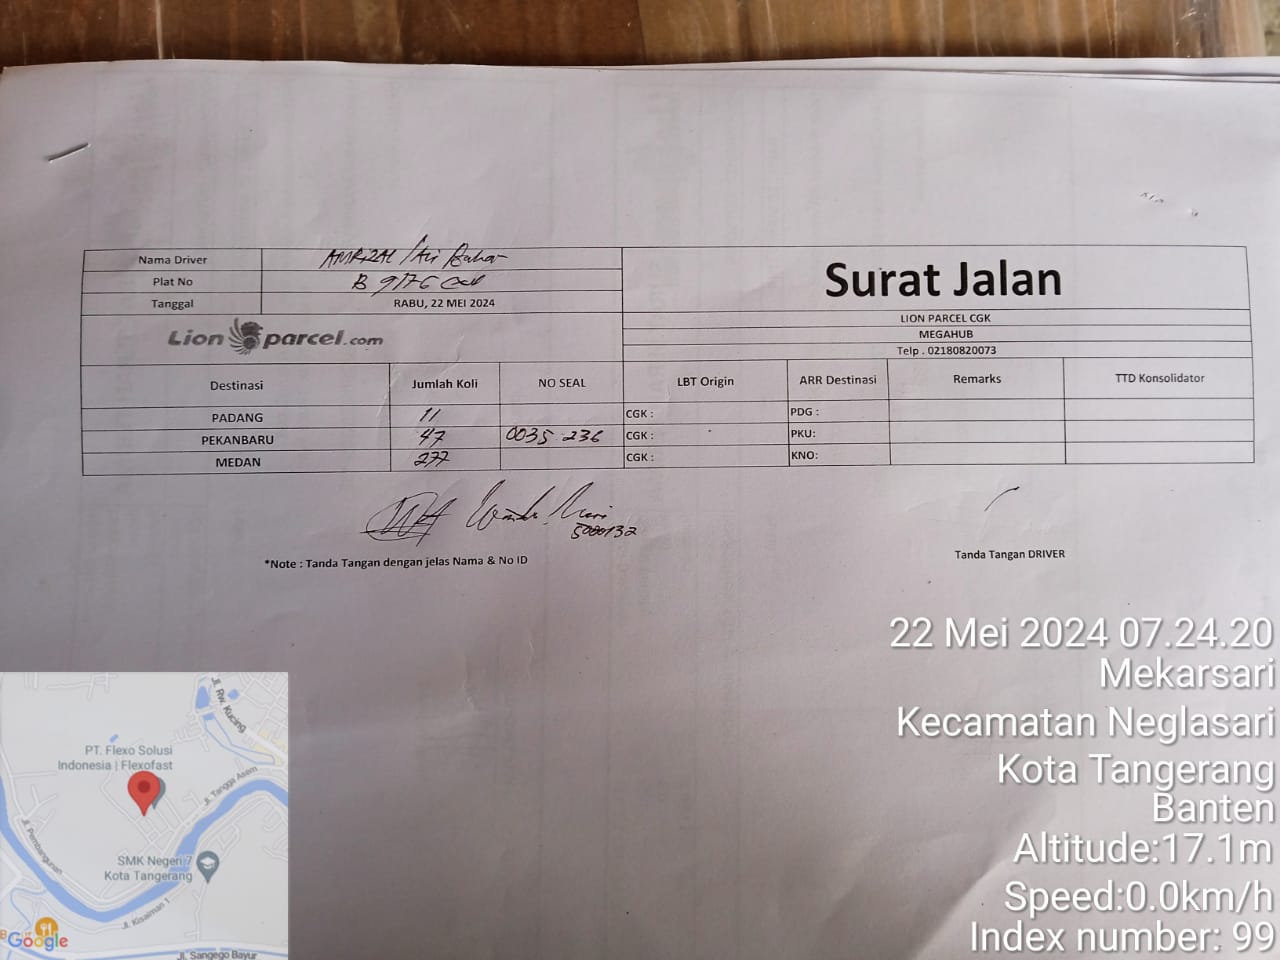 Nama Driver AMRIZAL
Plat No B 9176
Tanggal RABU, 22 MEI 2024
Surat Jalan
LION PARCEL CGK
MEGAHUB
Telp . 02180820073
Lion parcel.com
Destinasi Jumlah Koli NO SEAL LBT Origin ARR Destinasi Remarks TTD Konsolidator
PADANG 11 CGK : PDG :
PEKANBARU 47 0035 236 CGK : PKU:
MEDAN 277 CGK : KNO:
5000132
*Note : Tanda Tangan dengan jelas Nama & No ID
Tanda Tangan DRIVER
22 Mei 2024 07.24.20
Mekarsari
Kecamatan Neglasari
Kota Tangerang
Banten
Altitude:17.1m
Speed:0.0km/h
Index number: 99
Jl. Rw. Kucing
PT. Flexo Solusi
Indonesia | Flexofast
Jl. Tangga Asem
Jl. Pembangunan
SMK Negeri 7
Kota Tangerang
Jl. Kisaiman 1
Google
Jl. Sangego Bayur